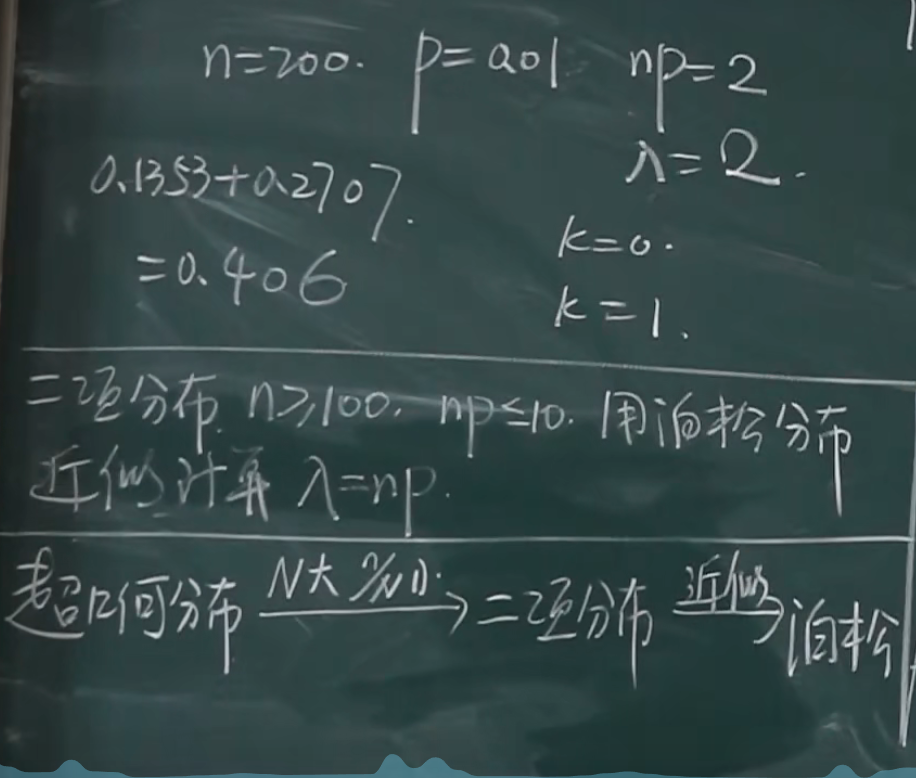 n=200. p=0.01 np=2
λ=2.
0.1353+0.2707.
=0.406
k=0.
k=1.
二项分布 n≥100. np≤10. 用泊松分布
近似计算 λ=np.
超几何分布 N大 n/N小. → 二项分布 近似 → 泊松